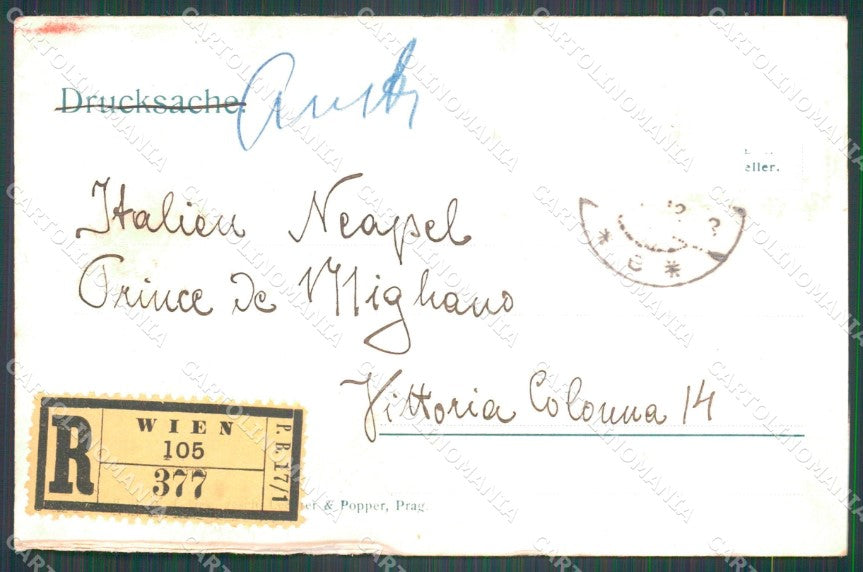 Drucksache.
eller.
Italien Neapel
Prince de Mignano
Vittoria Colonna 14
* e *
WIEN
105
R
377
P. B. 17/1
er & Popper, Prag.
CARTOLINOMANIA